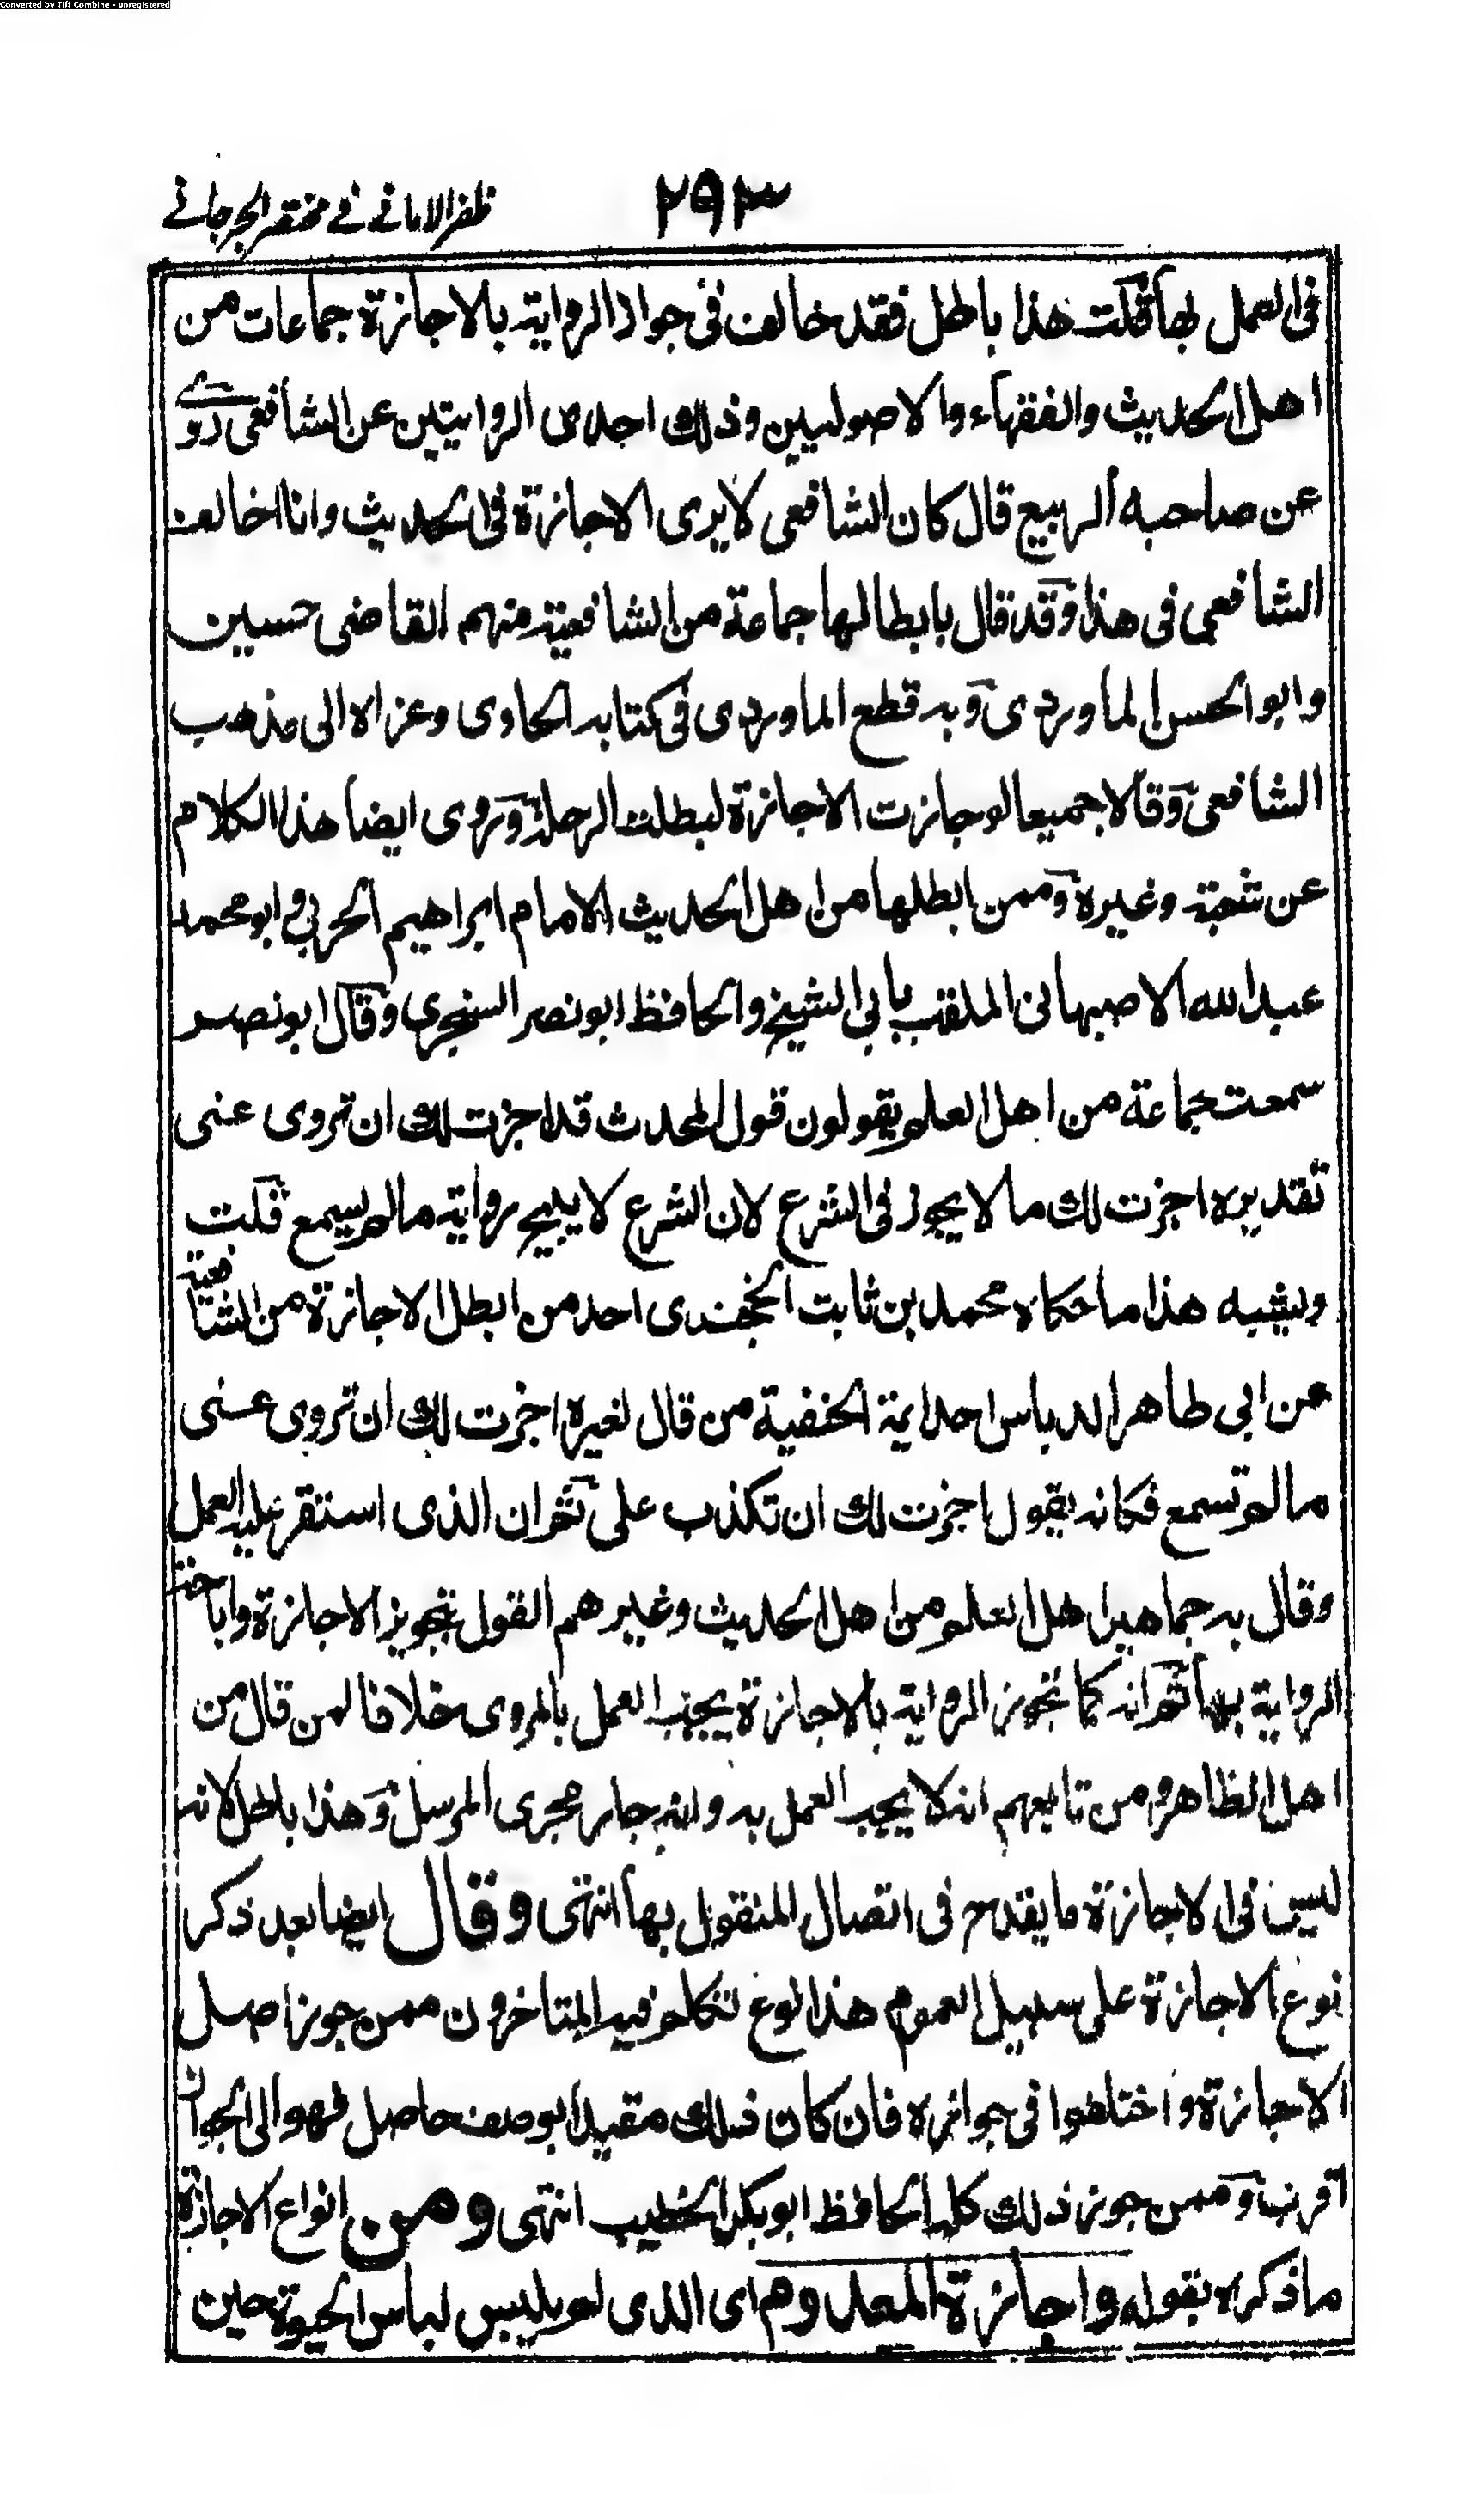 Converted by Tiff Combine - unregistered
٢٩٣ ظفر الامانے فے مختصر الجرجانے
فى العمل بها قلت هذا باطل فقد خالف فى جواز الرواية بالاجازة جماعات من
اهل الحديث والفقهاء والاصوليين وذلك احدى الروايتين عن الشافعى روى
عن صاحبه الربيع قال كان الشافعى لا يرى الاجازة فى الحديث وانا اخالف
الشافعى فى هذا وقد قال بابطالها جماعة من الشافعية منهم القاضى حسين
وابو الحسن الماوردى وبه قطع الماوردى فى كتابه الحاوى وعزاه الى مذهب
الشافعى وقالا جميعا لو جازت الاجازة لبطلت الرحلة وروى ايضا هذا الكلام
عن شعبة وغيره وممن ابطلها من اهل الحديث الامام ابراهيم الحربى وابو محمد
عبد الله الاصبهانى الملقب بابى الشيخ والحافظ ابو نصر السنجرى وقال ابو نصر
سمعت جماعة من اهل العلم يقولون قول المحدث قد اجزت لك ان تروى عنى
تقديره اجزت لك ما لا يجوز فى الشرع لان الشرع لا يبيح رواية ما لم يسمع قلت
ويشبه هذا ما حكاه محمد بن ثابت الخجندى احد من ابطل الاجازة من الشافعية
عن ابى طاهر الدباس احد ايمة الحنفية من قال لغيره اجزت لك ان تروى عنى
ما لم تسمع فكانه يقول اجزت لك ان تكذب على ثم ان الذى استقر عليه العمل
وقال به جماهير اهل العلم من اهل الحديث وغيرهم القول بتجويز الاجازة واباحة
الرواية بها ثم انه كما تجوز الرواية بالاجازة يجب العمل بالمروى خلافا لمن قال من
اهل الظاهر ومن تابعهم انه لا يجب العمل به وانه جار مجرى المرسل وهذا باطل لانه
ليس فى الاجازة ما يقدح فى اتصال المنقول بها انتهى وقال ايضا بعد ذكر
نوع الاجازة على سبيل العموم هذا نوع تكلم فيه المتاخرون ممن جوز اصل
الاجازة واختلفوا فى جوازه فان كان ذلك مقيدا بوصف حاصل فهو الى الجواز
اقرب وممن جوز ذلك كله الحافظ ابو بكر الخطيب انتهى ومن انواع الاجازة
ما ذكره بقوله واجازة المعدوم اى الذى لم يلبس لباس الحيوة حين